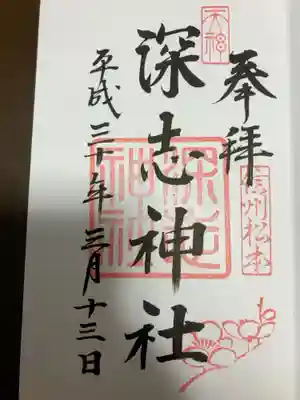 奉拝
天神
信州松本
深志神社
深志神社
平成三十年三月十三日